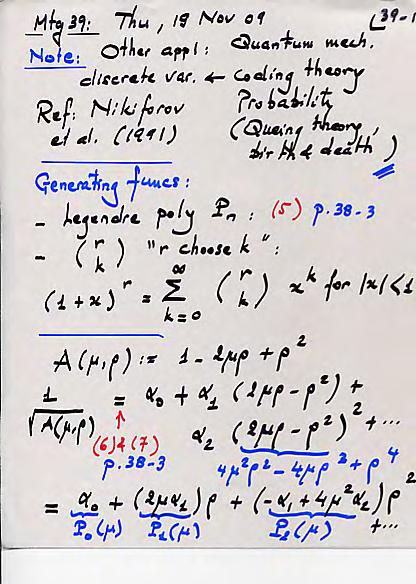 Mtg 39: Thu, 19 Nov 09 39-1
Note: Other appl: Quantum mech.
discrete var. ← Coding theory
Ref: Nikiforov Probability
et al. (1991) (Queing theory,
birth & death)
Generating funcs:
- Legendre poly Pₙ: (5) p.38-3
- (r k) "r choose k":
(1+x)^r = Σ_{k=0}^{∞} (r k) x^k for |x|<1
A(μ,ρ) := 1 - 2μρ + ρ²
1/√A(μ,ρ) = α₀ + α₁ (2μρ - ρ²) +
α₂ (2μρ - ρ²)² + ...
(6)&(7)
p.38-3 4μ²ρ² - 4μρ³ + ρ⁴
= α₀ + (2μα₁)ρ + (-α₁ + 4μ²α₂)ρ²
P₀(μ) P₁(μ) P₂(μ) + ...